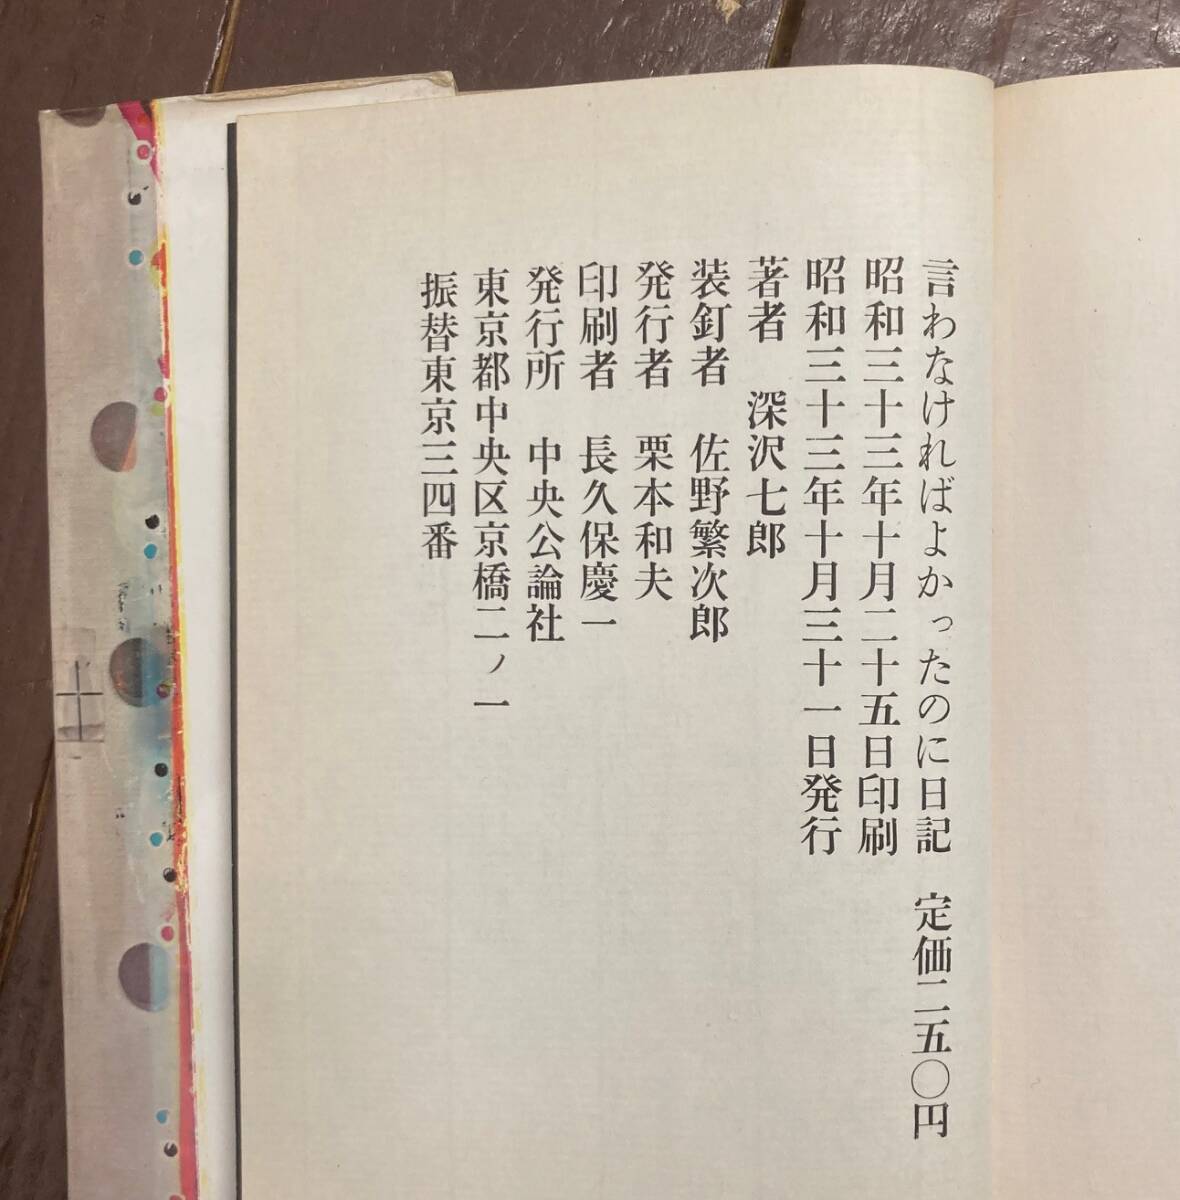 言わなければよかったのに日記　定価二五〇円
昭和三十三年十月二十五日印刷
昭和三十三年十月三十一日発行
著者　深沢七郎
装釘者　佐野繁次郎
発行者　栗本和夫
印刷者　長久保慶一
発行所　中央公論社
東京都中央区京橋二ノ一
振替東京三四番